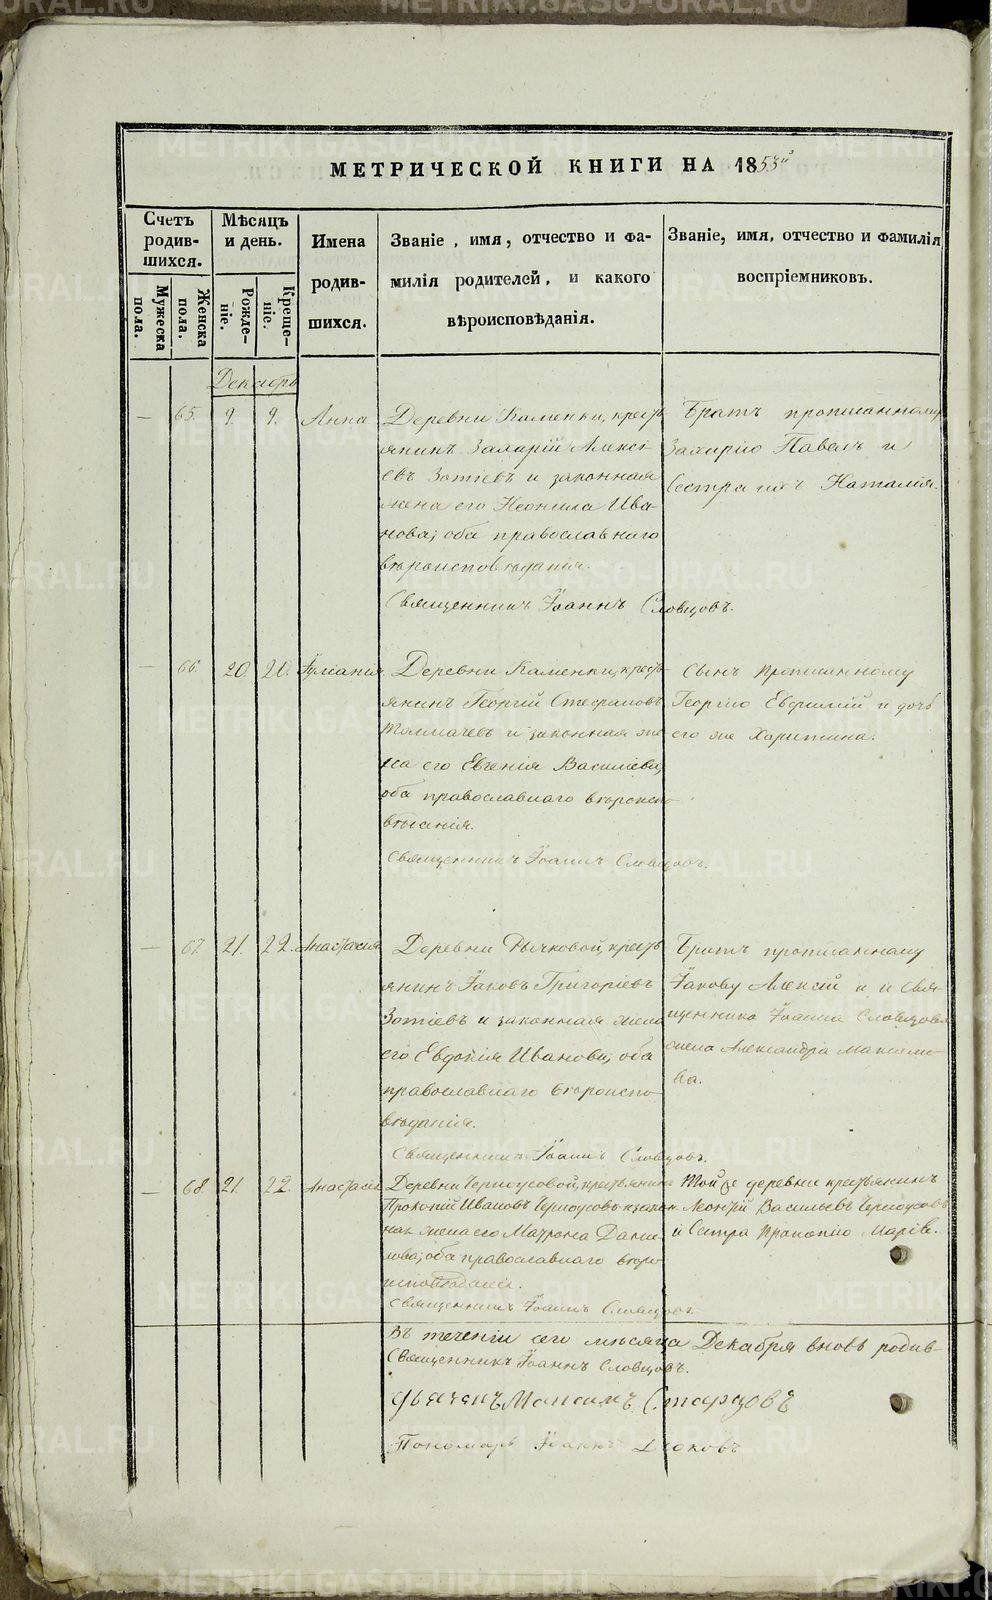 МЕТРИЧЕСКОЙ КНИГИ НА 1853й
Счетъ родив-шихся.
Мѣсяцъ и день.
Имена родив-шихся.
Званіе, имя, отчество и фа-
милія родителей, и какого
вѣроисповѣданія.
Званіе, имя, отчество и фамилія
воспріемниковъ.
Мужеска пола.
Женска пола.
Рожде-ніе.
Креще-ніе.
Декабрь
— 65. 9. 9. Анна
Деревни Каменки, кресть
янинъ Захарій Алексі-
евъ Зотіевъ и законная
жена его Неонила Ива-
нова; оба православнаго
вѣроисповѣданія.
Священникъ Іоаннъ Словцовъ.
Братъ прописанному
Захарію Павелъ и
Сестра ихъ Наталія.
— 66. 20 20. Іуліанія
Деревни Каменки, кресть
янинъ Георгій Стефановъ
Толмачевъ и законная же
на его Евгенія Василіева,
оба православнаго вѣроиспо
вѣданія.
Священникъ Іоаннъ Словцовъ.
Сынъ прописанному
Георгію Евфимій и дочь
его же Харитина.
— 67. 21. 22. Анастасія
Деревни Бычковой, кресть
янинъ Іаковъ Григоріевъ
Зотіевъ и законная жена
его Евдокія Иванова, оба
православнаго вѣроиспо-
вѣданія.
Священникъ Іоаннъ Словцовъ.
Братъ прописанному
Іакову Алексій и и Свя-
щенника Іоанна Словцова
жена Александра Максимо-
ва.
— 68. 21. 22. Анастасія
Деревни Черноусовой, крестьянинъ
Прокопій Ивановъ Черноусовъ и закон
ная жена его Матрона Дани-
лова; оба православнаго вѣро-
исповѣданія.
Священникъ Іоаннъ Словцовъ
Той же деревни крестьянинъ
Леонтій Васильевъ Черноусовъ
и Сестра Прокопію Марія.
Въ теченіи сего мѣсяца Декабря вновь родив-
Священникъ Іоаннъ Словцовъ.
Дьячекъ Максимъ Старцовъ
Пономарь Іоаннъ
METRIKI.GASO-URAL.RU